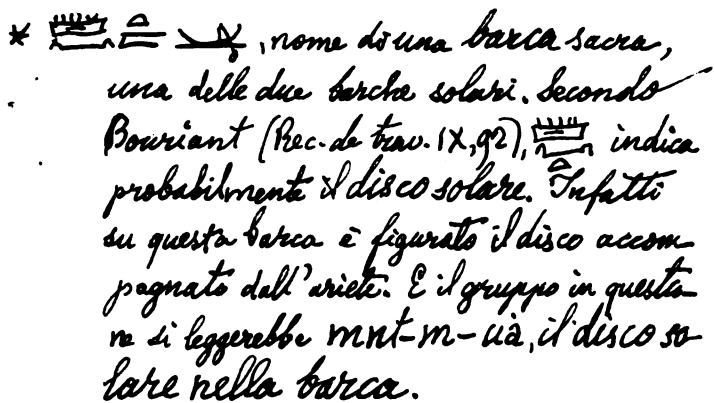 * , nome di una barca sacra,
una delle due barche solari. Secondo
Bouriant (Rec. de trav. IX, 92), indica
probabilmente il disco solare. Infatti
su questa barca è figurato il disco accom-
pagnato dall'ariete. E il gruppo in questio
ne si leggerebbe mnt-m-uà, il disco so
lare nella barca.